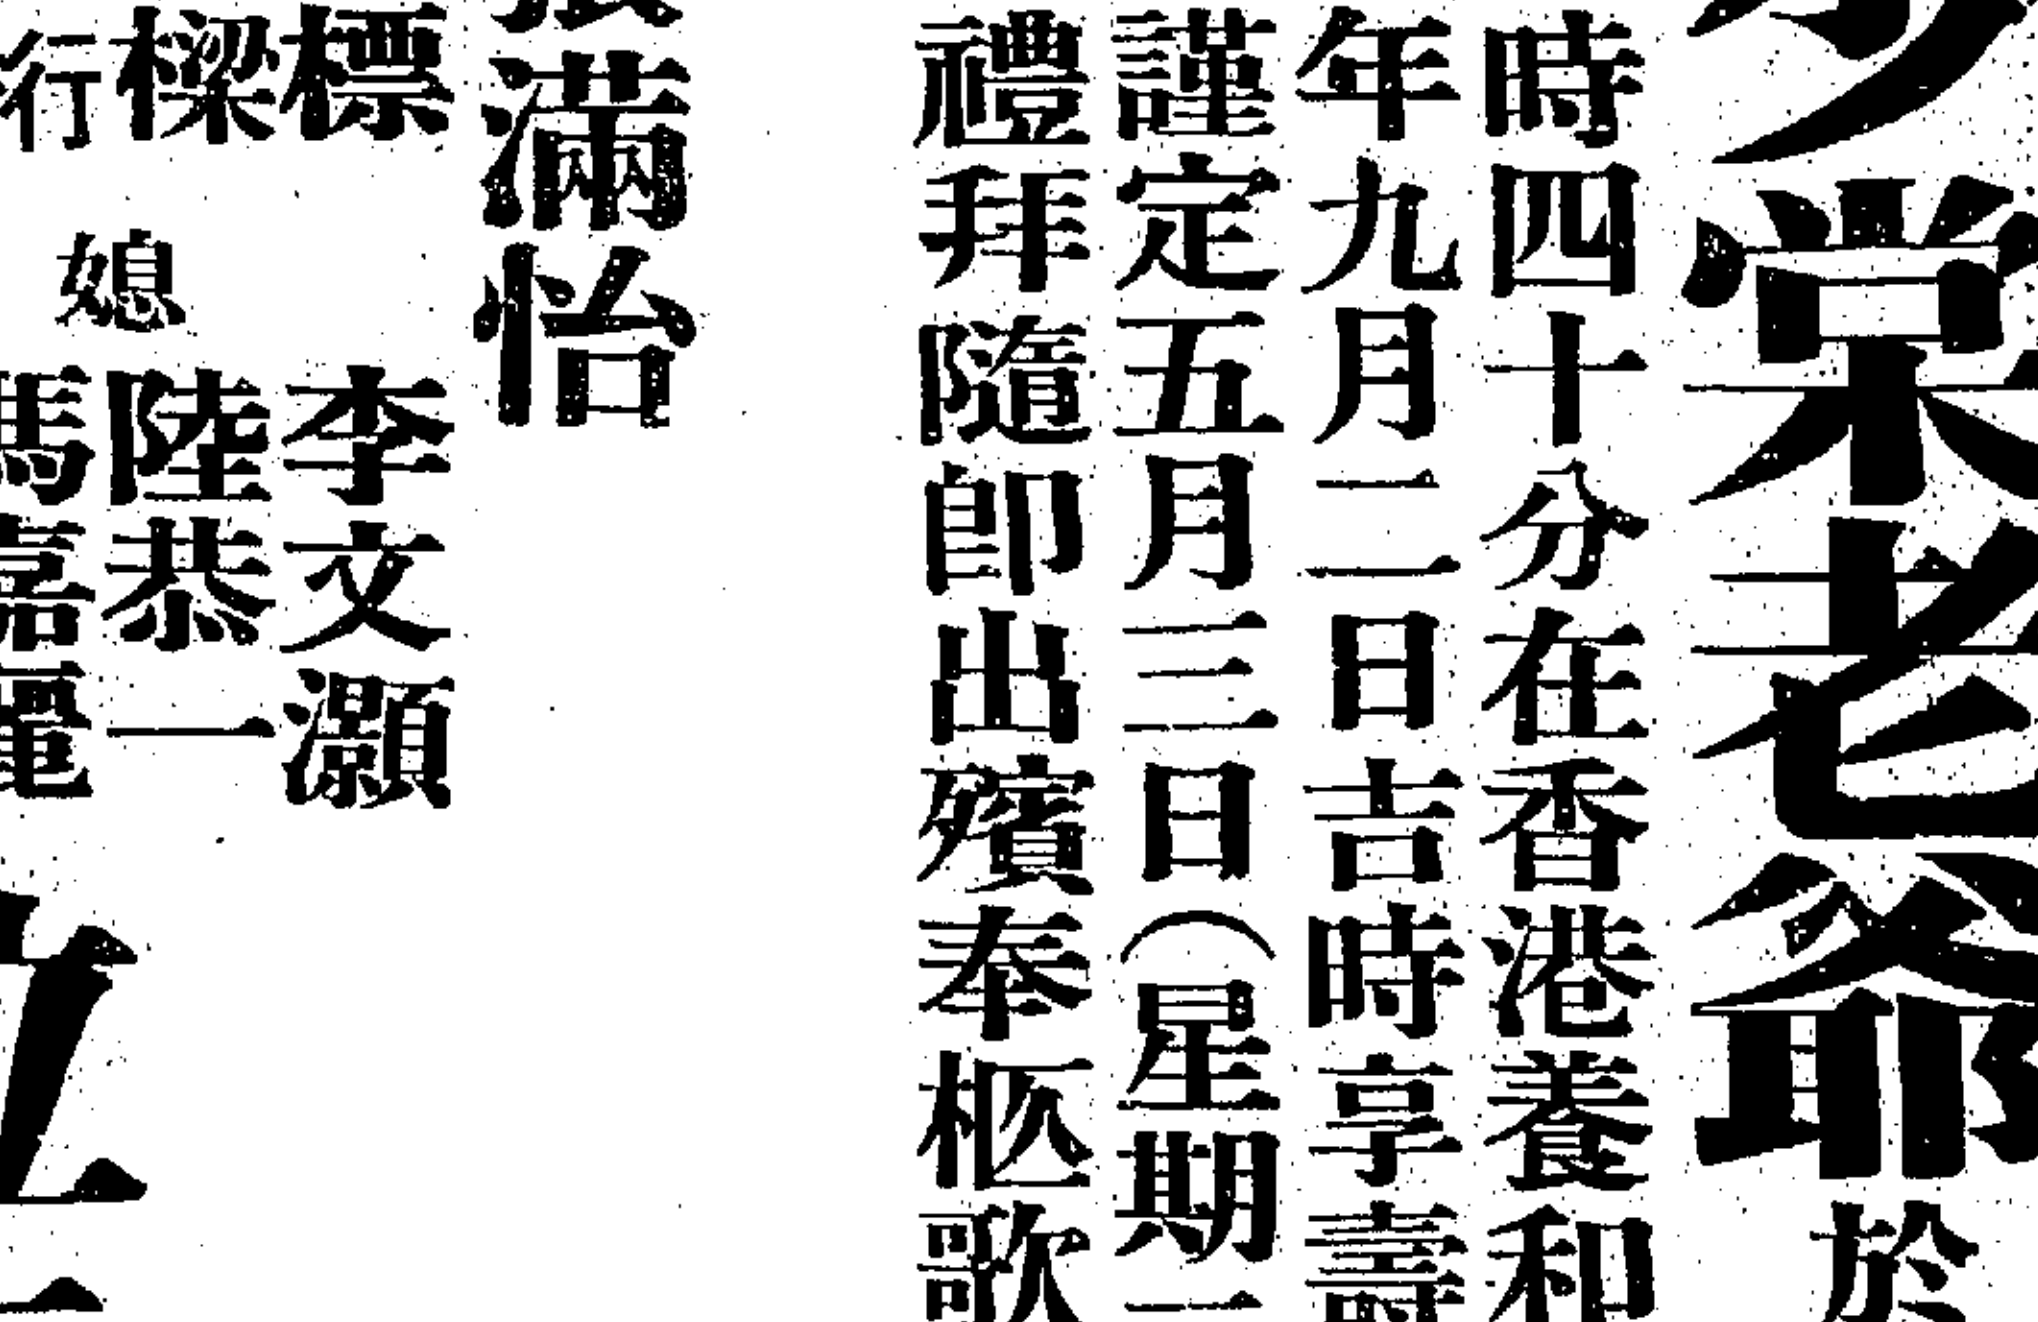 棠老爺於
時四十分在香港養和
年九月二日吉時享壽
謹定五月三日（星期
禮拜隨即出殯奉柩歌
滿怡
標 李文灝
樑 媳 陸恭一
行 馮嘉麗